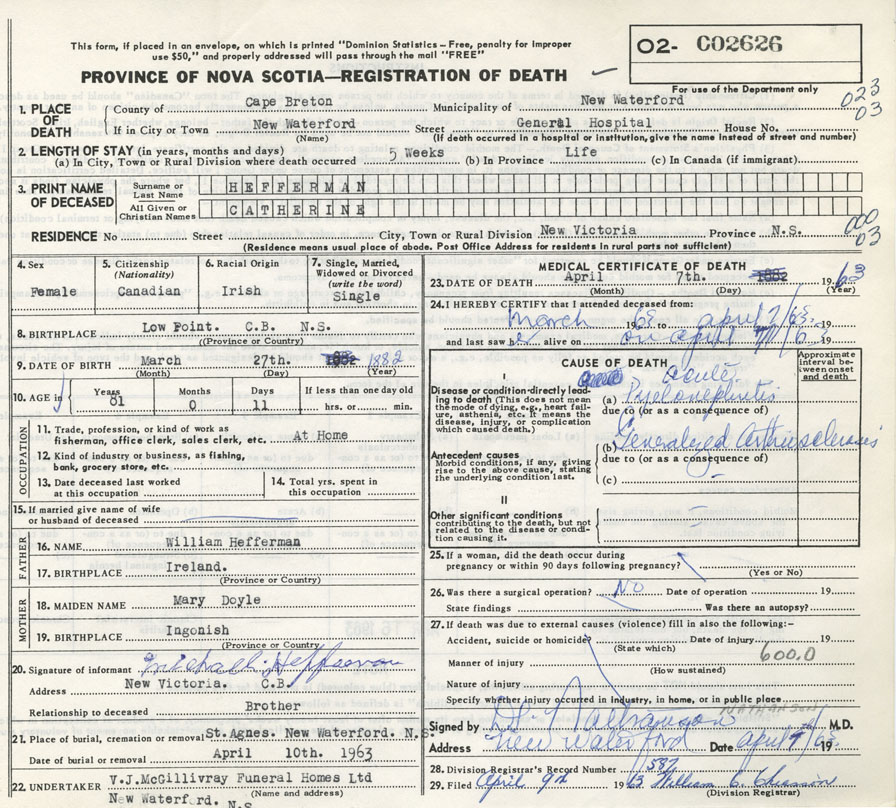 This form, if placed in an envelope, on which is printed "Dominion Statistics - Free, penalty for improper
use $50," and properly addressed will pass through the mail "FREE"
PROVINCE OF NOVA SCOTIA—REGISTRATION OF DEATH
O2- C02626
For use of the Department only
023
03
1. PLACE OF DEATH
County of Cape Breton Municipality of New Waterford
If in City or Town New Waterford Street General Hospital House No.
(Name) (If death occurred in a hospital or institution, give the name instead of street and number)
2. LENGTH OF STAY (in years, months and days)
(a) In City, Town or Rural Division where death occurred 5 Weeks (b) In Province Life (c) In Canada (if immigrant)
3. PRINT NAME OF DECEASED
Surname or Last Name HEFFERMAN
All Given or Christian Names CATHERINE
000
03
RESIDENCE No Street City, Town or Rural Division New Victoria Province N.S.
(Residence means usual place of abode. Post Office Address for residents in rural parts not sufficient)
4. Sex
Female
5. Citizenship
(Nationality)
Canadian
6. Racial Origin
Irish
7. Single, Married,
Widowed or Divorced
(write the word)
Single
8. BIRTHPLACE Low Point. C.B. N.S.
(Province or Country)
9. DATE OF BIRTH March 27th. 1882 1882
(Month) (Day) (Year)
10. AGE in
Years 81
Months 0
Days 11
If less than one day old
hrs. or min.
OCCUPATION
11. Trade, profession, or kind of work as
fisherman, office clerk, sales clerk, etc. At Home
12. Kind of industry or business, as fishing,
bank, grocery store, etc.
13. Date deceased last worked
at this occupation
14. Total yrs. spent in
this occupation
15. If married give name of wife
or husband of deceased
FATHER
16. NAME William Hefferman
17. BIRTHPLACE Ireland.
(Province or Country)
MOTHER
18. MAIDEN NAME Mary Doyle
19. BIRTHPLACE Ingonish
(Province or Country)
20. Signature of informant
Address New Victoria. C.B.
Relationship to deceased Brother
21. Place of burial, cremation or removal St.Agnes. New Waterford. N.S.
Date of burial or removal April 10th. 1963
22. UNDERTAKER V.J.McGillivray Funeral Homes Ltd
(Name and address)
New Waterford. N.S
MEDICAL CERTIFICATE OF DEATH
23. DATE OF DEATH April 7th. 1882 1963
(Month) (Day) (Year)
24. I HEREBY CERTIFY that I attended deceased from:
March 1963 to april 7/63 19
and last saw her alive on on april 7/63 19
CAUSE OF DEATH
Approximate
interval be-
tween onset
and death
I
Disease or condition directly lead-
ing to death (This does not mean
the mode of dying, e.g., heart fail-
ure, asthenia, etc. It means the
disease, injury, or complication
which caused death.)
acute
(a) Pyelonephritis
due to (or as a consequence of)
Antecedent causes
Morbid conditions, if any, giving
rise to the above cause, stating
the underlying condition last.
(b) Generalized Arteriosclerosis
due to (or as a consequence of)
(c)
II
Other significant conditions
contributing to the death, but not
related to the disease or condi-
tion causing it.
25. If a woman, did the death occur during
pregnancy or within 90 days following pregnancy?
(Yes or No)
26. Was there a surgical operation? No Date of operation 19
State findings Was there an autopsy?
27. If death was due to external causes (violence) fill in also the following:—
Accident, suicide or homicide? Date of injury 19
(State which)
600.0
Manner of injury
(How sustained)
Nature of injury
Specify whether injury occurred in industry, in home, or in public place
NATHANSON
Signed by Dr. Nathanson M.D.
Address New Waterford Date april 9th/63 19
28. Division Registrar's Record Number 587
29. Filed April 9th 1963 William C. Chiasson
(Division Registrar)